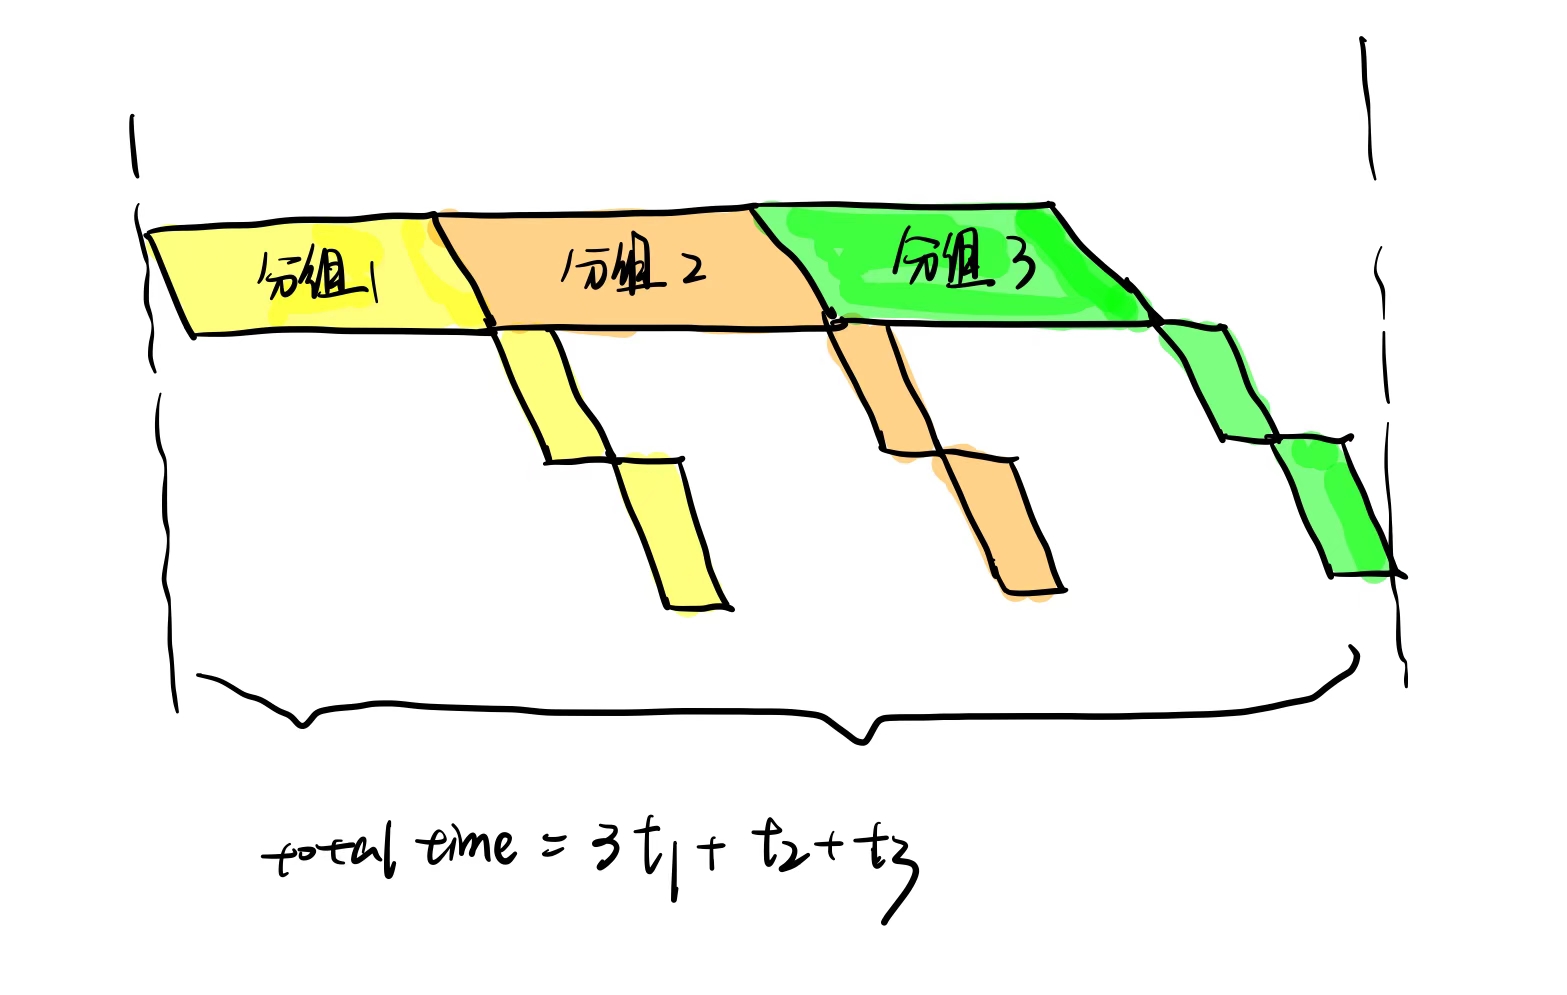 分组1 分组2 分组3
total time = 3t₁ + t₂ + t₃